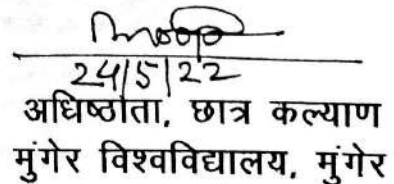 24/5/22
अधिष्ठाता, छात्र कल्याण
मुंगेर विश्वविद्यालय, मुंगेर